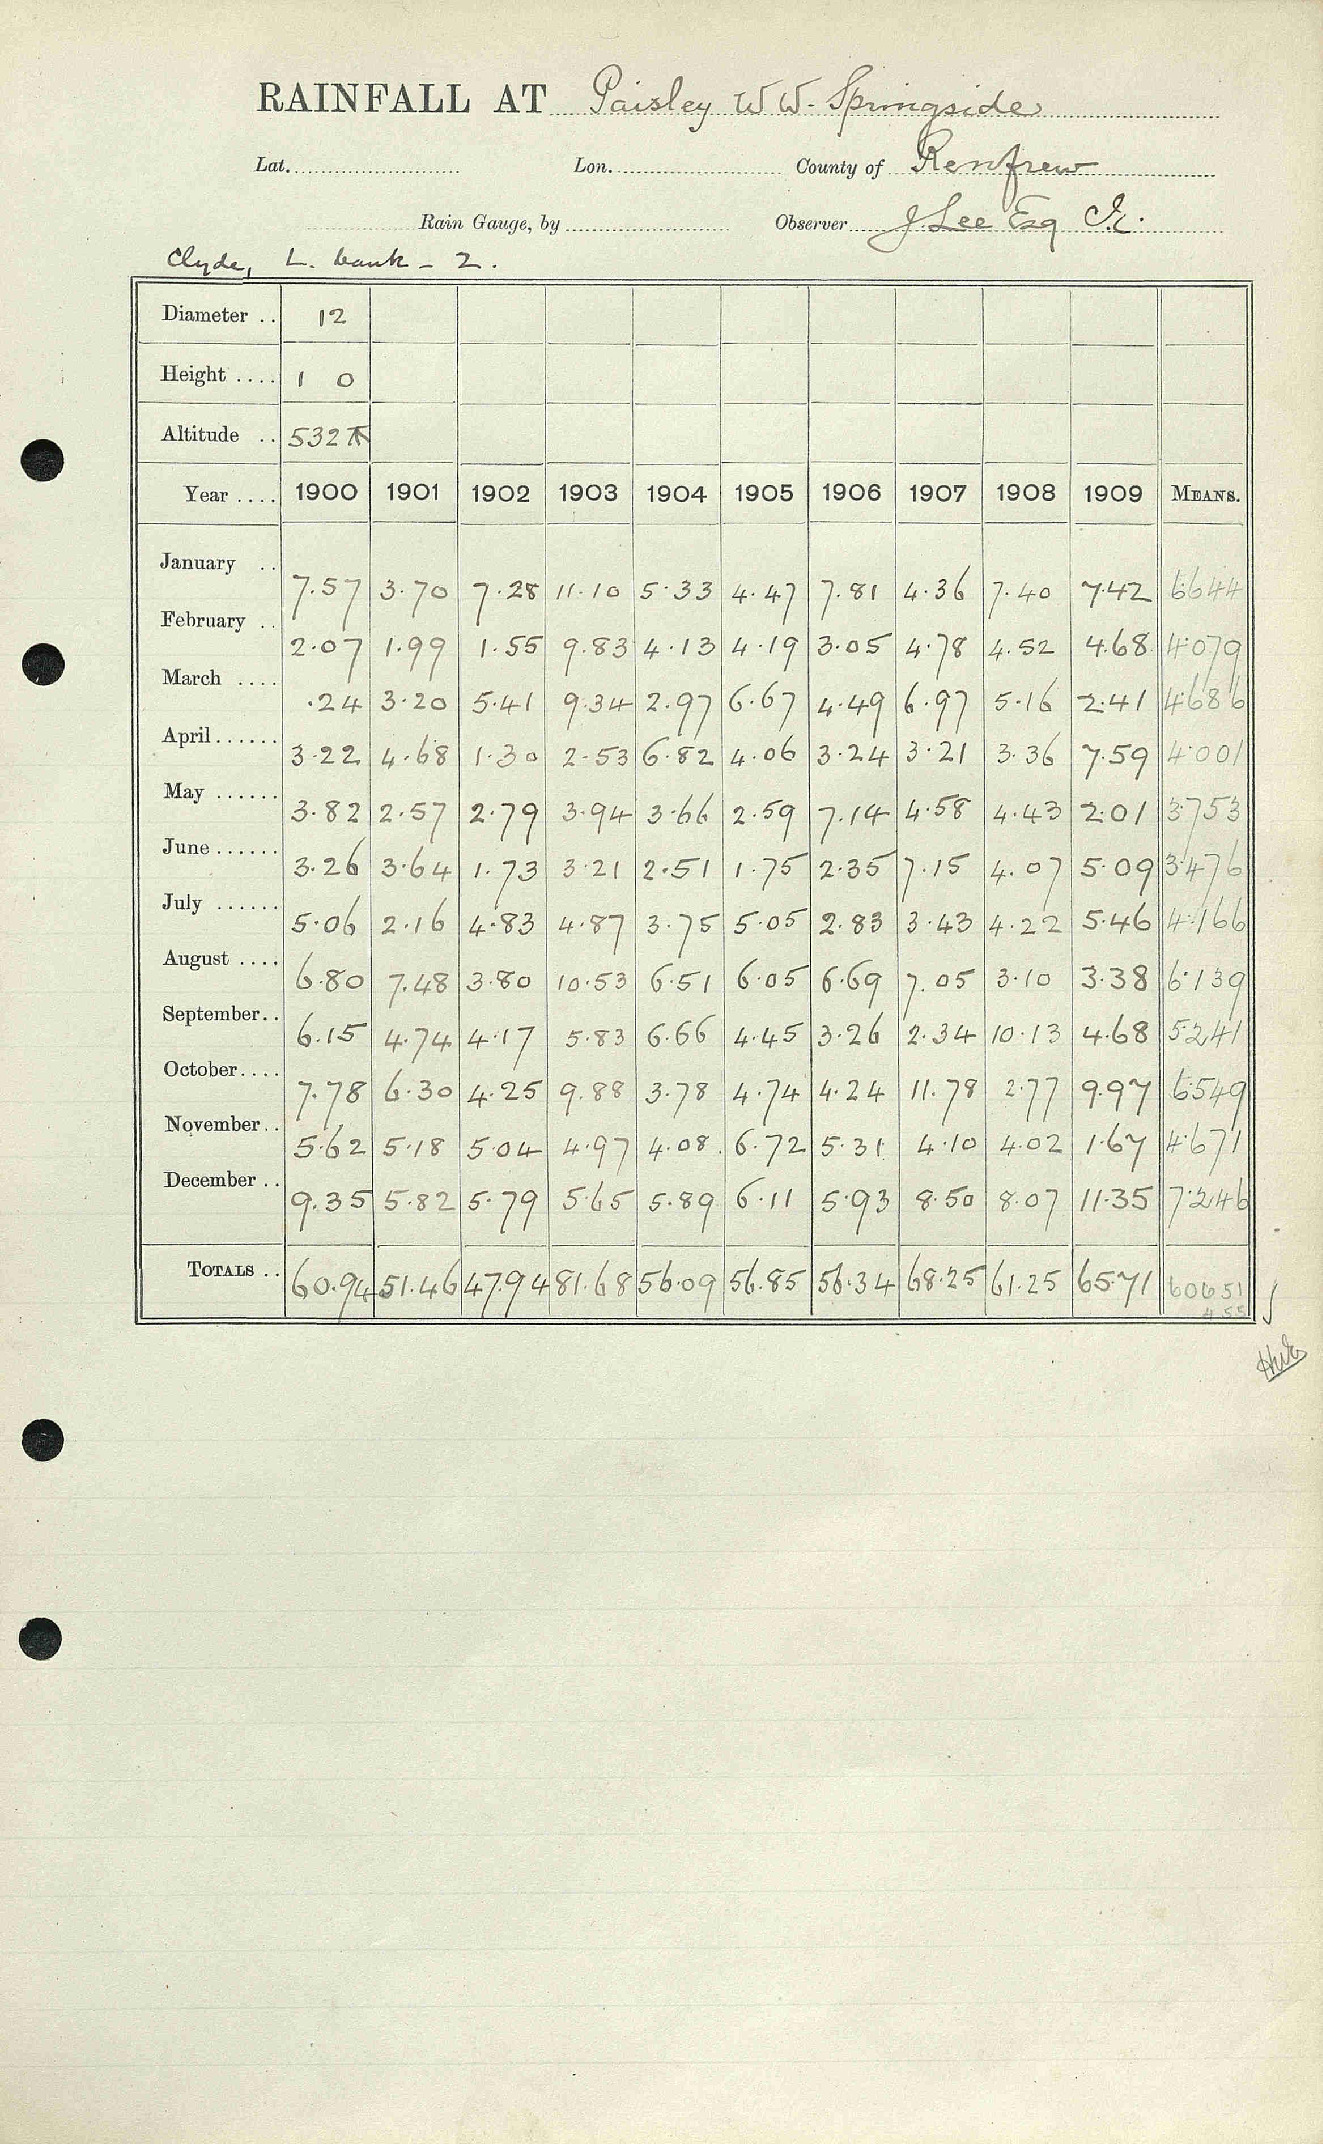 RAINFALL AT Paisley W W. Springside
Lat. Lon. County of Renfrew
Rain Gauge, by Observer J. Lee Esq C.E.
Clyde, L. bank - 2.
Diameter .. 12
Height .... 1 0
Altitude .. 532
Year .... 1900 1901 1902 1903 1904 1905 1906 1907 1908 1909 MEANS.
January .. 7.57 3.70 7.28 11.10 5.33 4.47 7.81 4.36 7.40 7.42 6.644
February .. 2.07 1.99 1.55 9.83 4.13 4.19 3.05 4.78 4.52 4.68 4.079
March .... .24 3.20 5.41 9.34 2.97 6.67 4.49 6.97 5.16 2.41 4.686
April...... 3.22 4.68 1.30 2.53 6.82 4.06 3.24 3.21 3.36 7.59 4.001
May ...... 3.82 2.57 2.79 3.94 3.66 2.59 7.14 4.58 4.43 2.01 3.753
June ...... 3.26 3.64 1.73 3.21 2.51 1.75 2.35 7.15 4.07 5.09 3.476
July ...... 5.06 2.16 4.83 4.87 3.75 5.05 2.83 3.43 4.22 5.46 4.166
August .... 6.80 7.48 3.80 10.53 6.51 6.05 6.69 7.05 3.10 3.38 6.139
September.. 6.15 4.74 4.17 5.83 6.66 4.45 3.26 2.34 10.13 4.68 5.241
October.... 7.78 6.30 4.25 9.88 3.78 4.74 4.24 11.78 2.77 9.97 6.549
November.. 5.62 5.18 5.04 4.97 4.08 6.72 5.31 4.10 4.02 1.67 4.671
December .. 9.35 5.82 5.79 5.65 5.89 6.11 5.93 8.50 8.07 11.35 7.246
TOTALS .. 60.94 51.46 47.94 81.68 56.09 56.85 56.34 68.25 61.25 65.71 60651
455